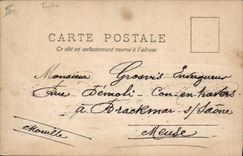 CARTE POSTALE
Ce côté est exclusivement réservé à l'adresse
Monsieur Grosvis Entrepreneur
Rue Démoli - Con-en-travers
à Brackmar s/Saône
Meuse